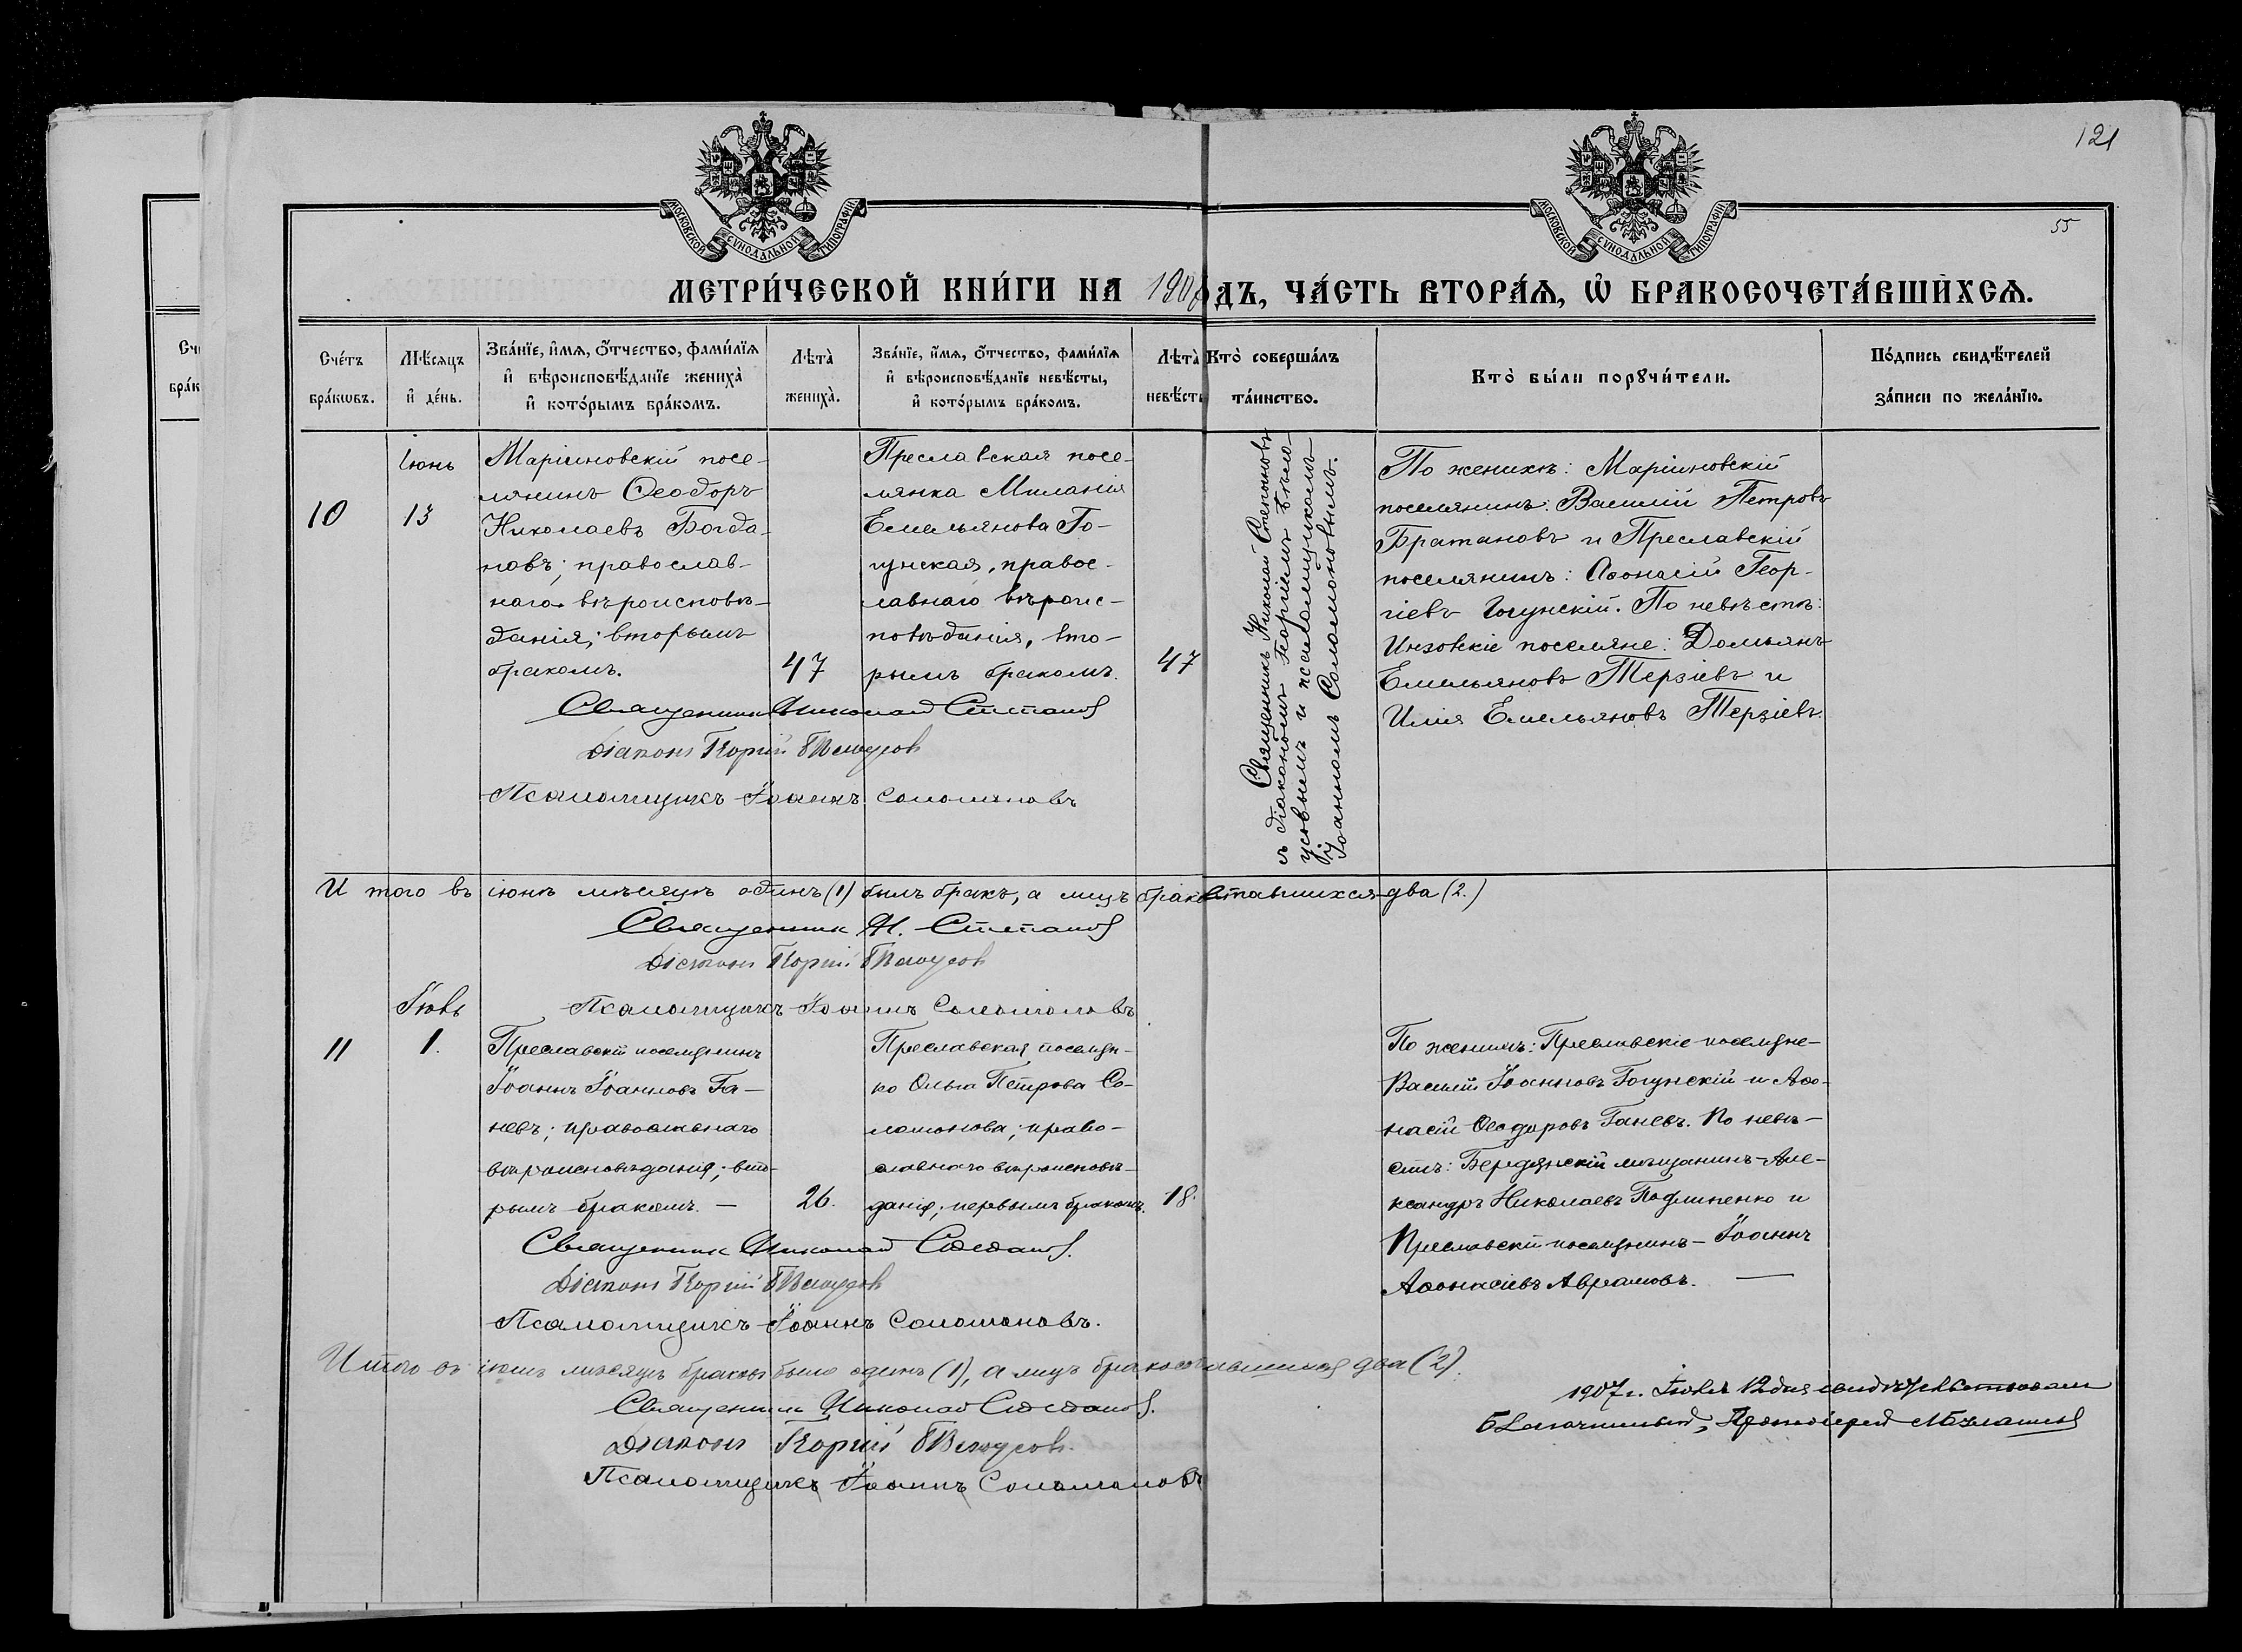 121
55
МОСКОВСКОЙ СѴНОДАЛЬНОЙ ТИПОГРАФІИ
МОСКОВСКОЙ СѴНОДАЛЬНОЙ ТИПОГРАФІИ
МЕТРИ́ЧЕСКОЙ КНИ́ГИ НА 190 ДЪ, ЧА́СТЬ ВТОРА́Ѧ, Ѡ҆ БРАКОСОЧЕТА́ВШИХСѦ.
Сче́тъ
бра́кѡвъ.
Мѣ́сѧцъ
и҆ де́нь.
Зва́нїе, и҆́мѧ, ѻ҆́тчество, фами́лїѧ
и҆ вѣроисповѣ́данїе жениха̀
и҆ кото́рымъ бра́комъ.
Лѣта̀
жениха̀.
Зва́нїе, и҆́мѧ, ѻ҆́тчество, фами́лїѧ
и҆ вѣроисповѣ́данїе невѣ́сты,
и҆ кото́рымъ бра́комъ.
Лѣта̀
невѣ́сты
Кто̀ соверша́лъ
та́инство.
Кто̀ бы́ли порꙋчи́тели.
По́дпись свидѣ́телей
за́писи по жела́нїю.
10
Іюнь
13
Маріиновскій посе-
лянинъ Ѳеодоръ
Николаевъ Богда-
новъ; православ-
наго вѣроисповѣ-
данія; вторымъ
бракомъ.
47
Преславская посе-
лянка Миланія
Емельянова Го-
гунская, правос-
лавнаго вѣроис-
повѣданія, вто-
рымъ бракомъ.
47
Священникъ Николай Степановъ
съ діакономъ Георгіемъ Бѣло-
усовымъ и псаломщикомъ
Іоанномъ Соломоновымъ.
По женихѣ: Маріиновскій
поселянинъ: Василій Петровъ
Братановъ и Преславскій
поселянинъ: Аѳонасій Геор-
гіевъ Гогунскій. По невѣстѣ:
Инзовскіе поселяне: Домьянъ
Емельяновъ Терзіевъ и
Илія Емельяновъ Терзіевъ.
Священникъ Николай Степановъ
Діаконъ Георгій Бѣлоусовъ
Псаломщикъ Іоаннъ Соломоновъ
И того въ іюнѣ мѣсяцѣ одинъ (1) былъ бракъ, а лицъ два (2.)
Священникъ Н. Степановъ
Діаконъ Георгій Бѣлоусовъ
Псаломщикъ Іоаннъ Соломоновъ
11
Іюль
1.
Преславскій поселянинъ
Іоаннъ Іоанновъ Га-
невъ; православнаго
вѣроисповѣданія; вто-
рымъ бракомъ. —
26.
Преславская поселян-
ка Ольга Петрова Со-
ломонова; право-
славнаго вѣроисповѣ-
данія; первымъ бракомъ.
18.
По женихѣ: Преславскіе поселяне-
Василій Іоанновъ Гогунскій и Аѳо-
насій Ѳеодоровъ Ганевъ. По невѣ-
стѣ: Бердянскій мѣщанинъ-Але-
ксандръ Николаевъ Подлипенко и
Преславскій поселянинъ- Іоаннъ
Аѳонасіевъ Аврамовъ. —
Священникъ Николай Степановъ.
Діаконъ Георгій Бѣлоусовъ
Псаломщикъ Іоаннъ Соломоновъ.
Итого въ іюлѣ мѣсяцѣ браковъ было одинъ (1), а лицъ два (2).
Священникъ Николай Степановъ.
Діаконъ Георгій Бѣлоусовъ.
Псаломщикъ Іоаннъ Соломоновъ
1907 г. Іюля 12 дня свидѣтельствовалъ
Благочинный, Протоіерей